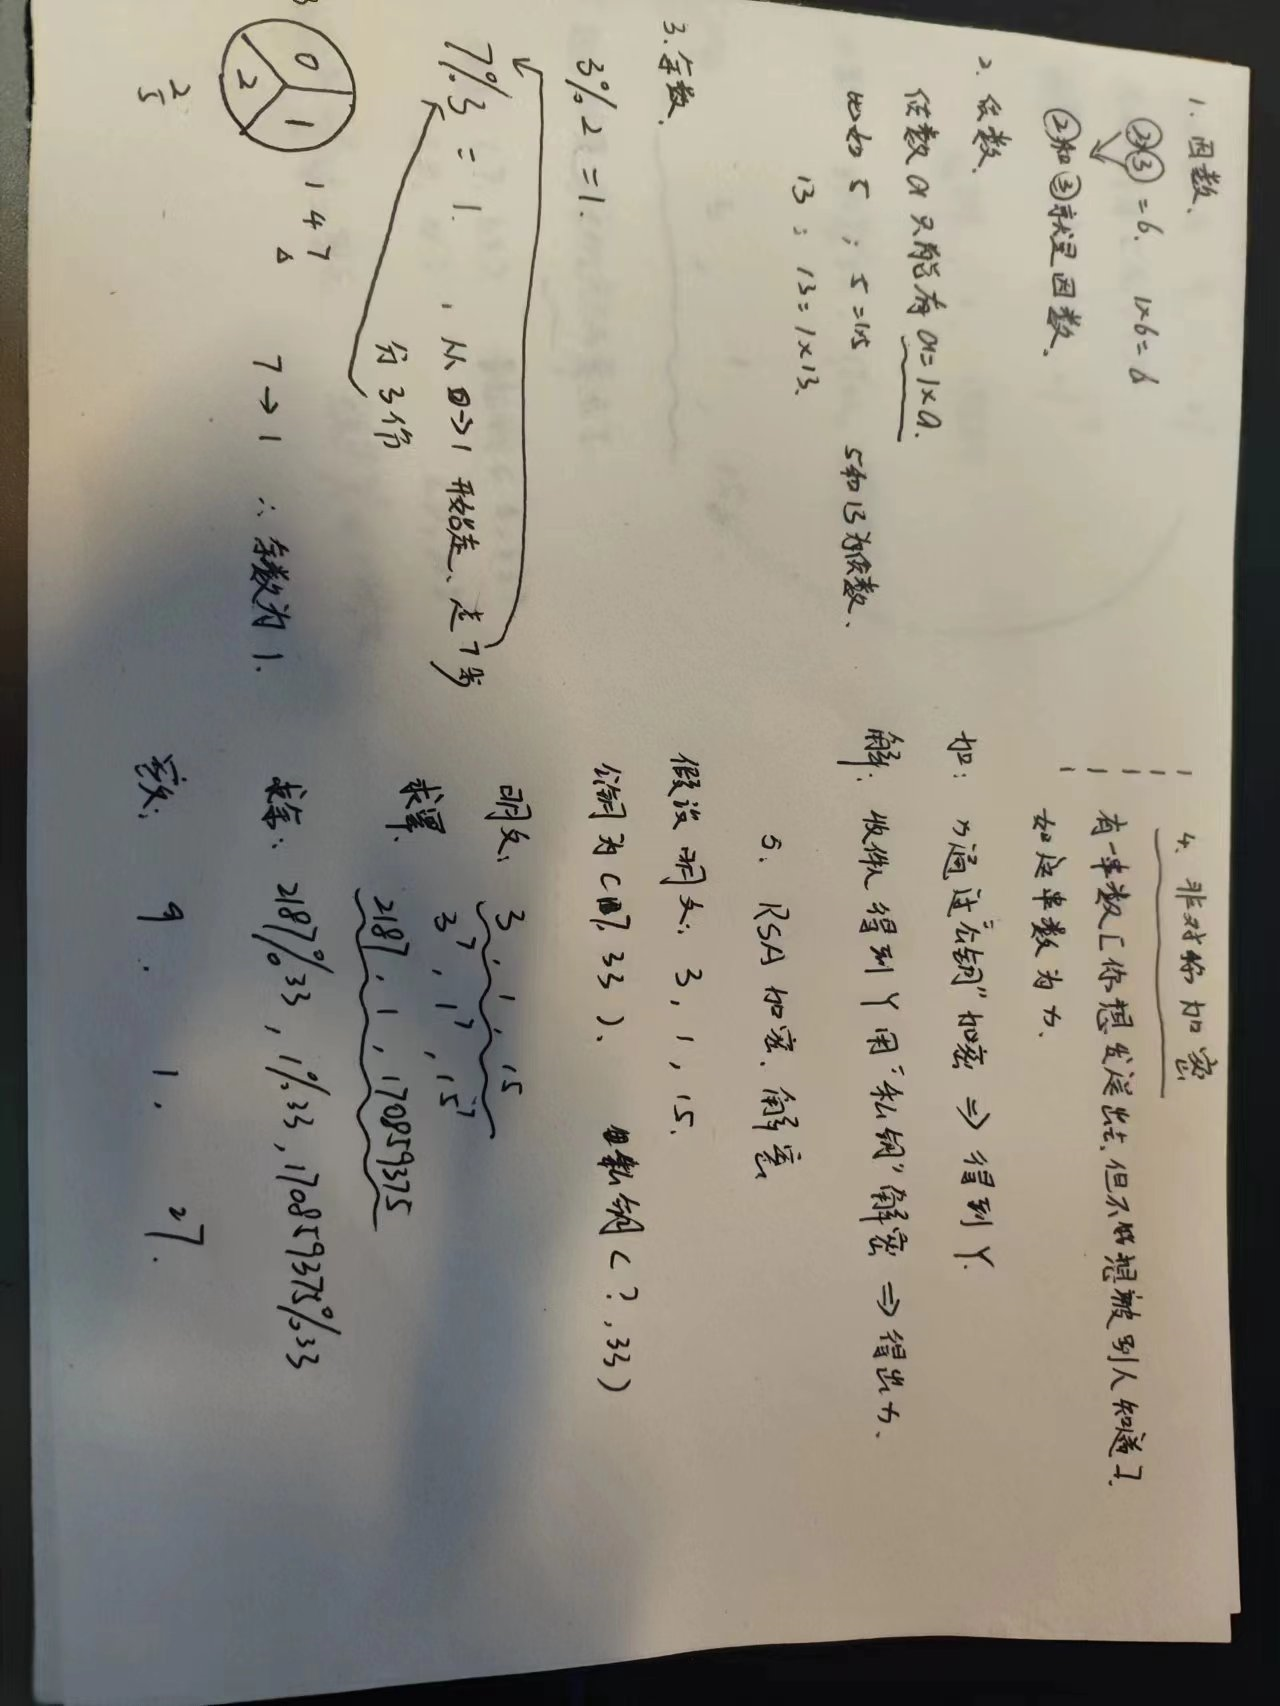 1. 因数、
2×3 = 6、 1×6 = 6
②和③就是因数、
2、质数、
质数 a 只能有 a=1×a.
比如 5 ; 5=1×5
13 ; 13=1×13、
5和13为质数、
3、余数、
3%2 = 1.
7%3 = 1. , 从 → 1 开始走、走7步
分3份
0
1
2
1 4 7
7 → 1 ∴ 余数为 1.
2
5
4. 非对称加密
有一串数[你想发送出去,但不想被别人知道了.
如这串数为 x.
加: x通过“公钥”加密 ⇒ 得到 Y.
解: 收件人得到 Y 用“私钥”解密 ⇒ 得出 x.
5、RSA 加密、解密
假设明文: 3, 1, 15.
公钥为 ( 7, 33 )、 私钥 ( ?, 33 )
明文、 3, 1, 15
求幂、 3⁷, 1⁷, 15⁷
2187, 1, 170859375
求余: 2187%33, 1%33, 170859375%33
密文: 9 . 1 . 27.